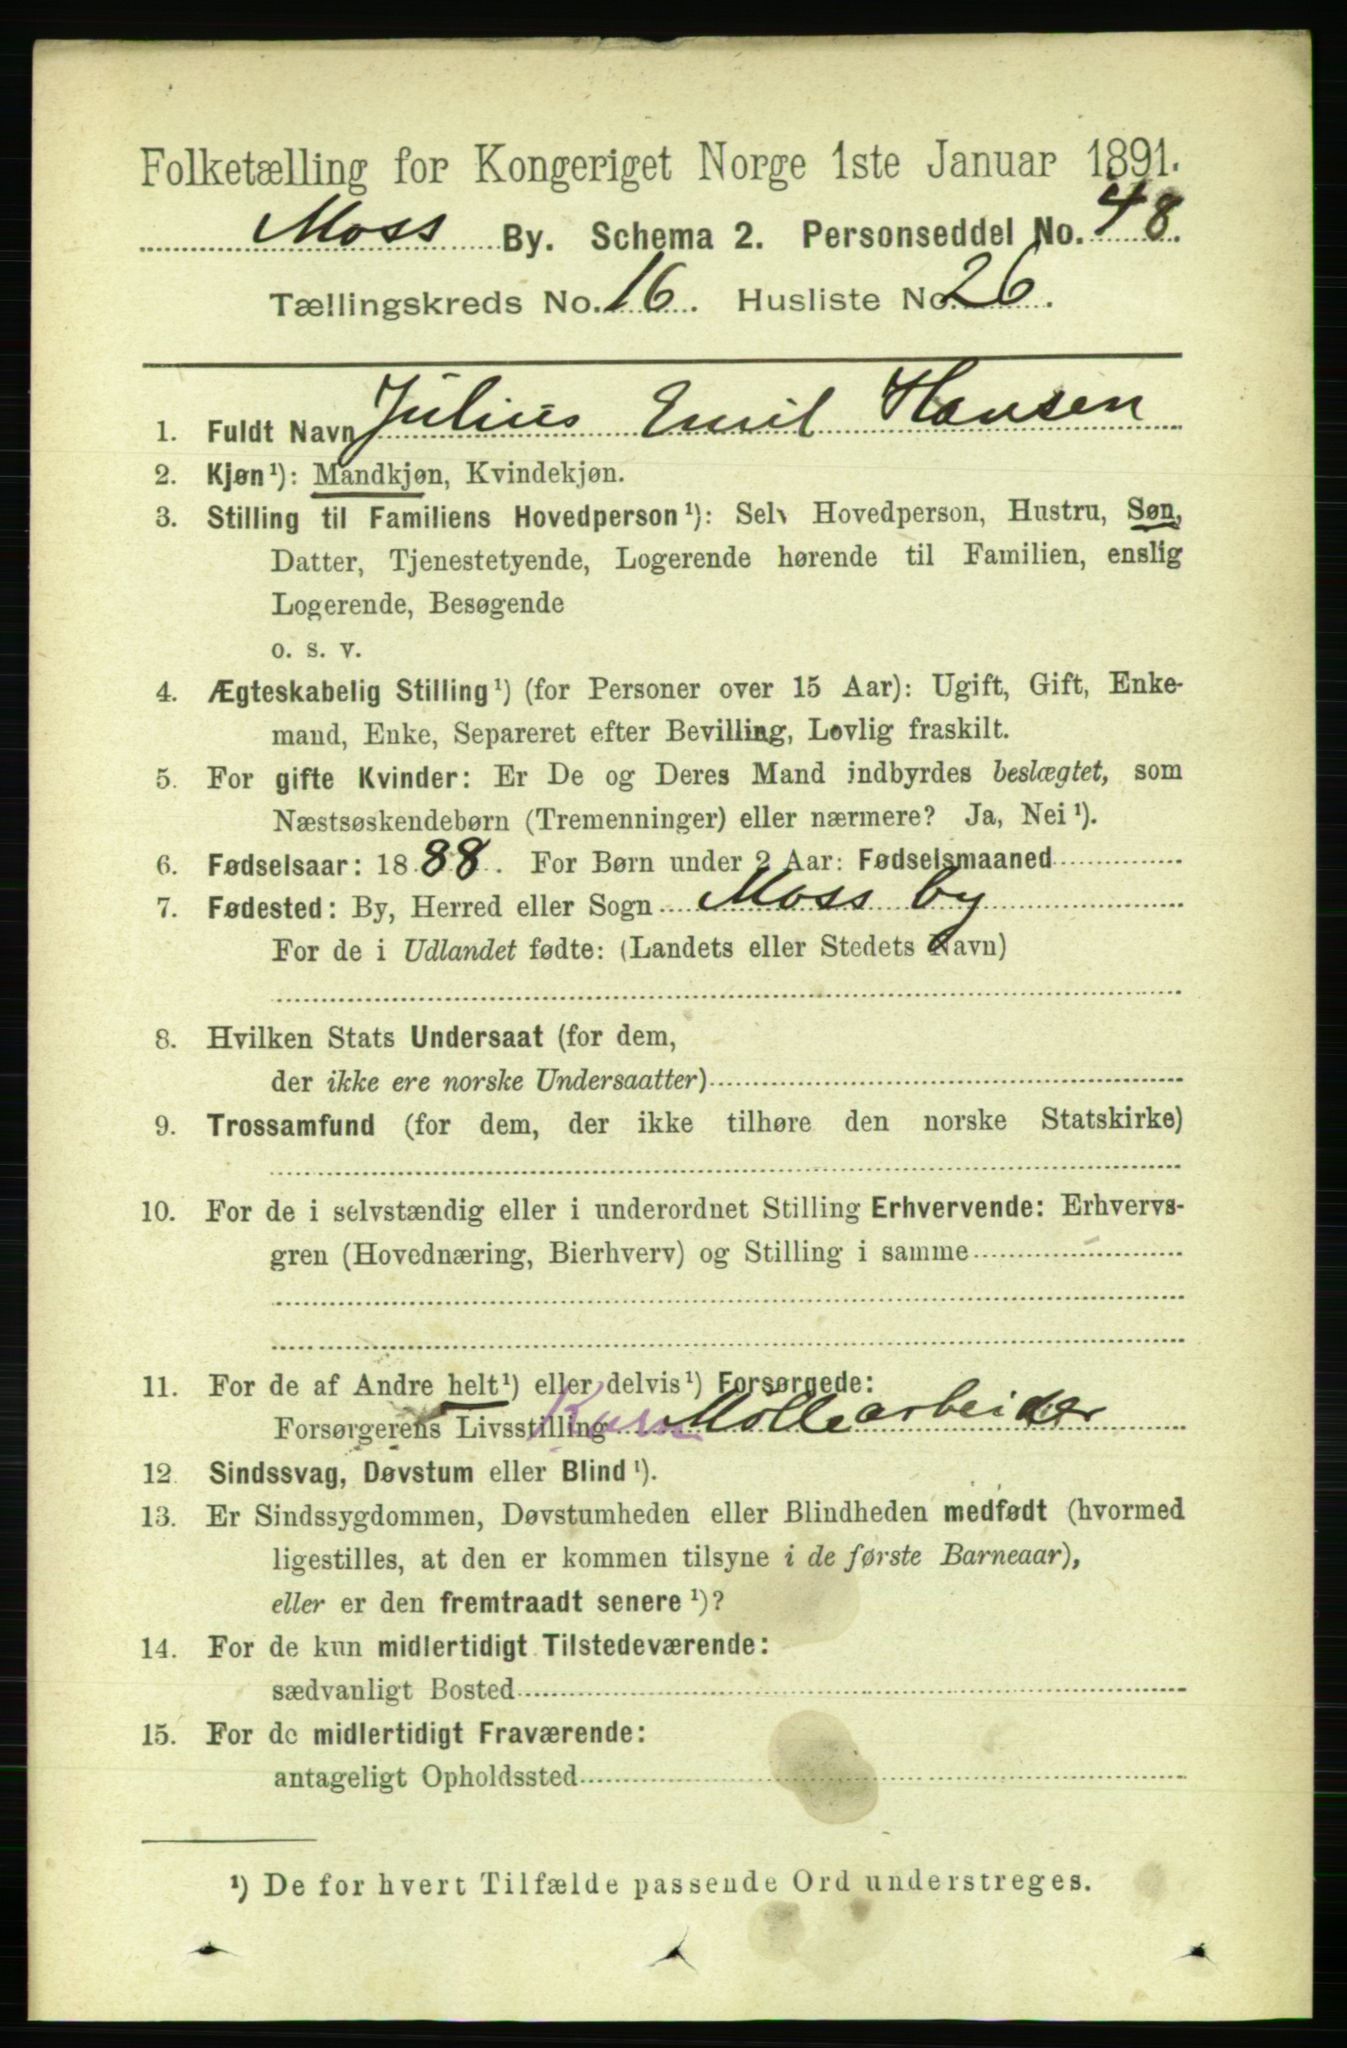 Folketælling for Kongeriget Norge 1ste Januar 1891.
Moss By. Schema 2. Personseddel No. 48.
Tællingskreds No. 16. Husliste No. 26.
1. Fuldt Navn Julius Emil Hansen
2. Kjøn¹): Mandkjøn, Kvindekjøn.
3. Stilling til Familiens Hovedperson¹): Selv Hovedperson, Hustru, Søn,
Datter, Tjenestetyende, Logerende hørende til Familien, enslig
Logerende, Besøgende
o. s. v.
4. Ægteskabelig Stilling¹) (for Personer over 15 Aar): Ugift, Gift, Enke-
mand, Enke, Separeret efter Bevilling, Lovlig fraskilt.
5. For gifte Kvinder: Er De og Deres Mand indbyrdes beslægtet, som
Næstsøskendebørn (Tremenninger) eller nærmere? Ja, Nei¹).
6. Fødselsaar: 1888. For Børn under 2 Aar: Fødselsmaaned
7. Fødested: By, Herred eller Sogn Moss by
For de i Udlandet fødte: (Landets eller Stedets Navn)
8. Hvilken Stats Undersaat (for dem,
der ikke ere norske Undersaatter)
9. Trossamfund (for dem, der ikke tilhøre den norske Statskirke)
10. For de i selvstændig eller i underordnet Stilling Erhvervende: Erhvervs-
gren (Hovednæring, Bierhverv) og Stilling i samme
11. For de af Andre helt¹) eller delvis¹) Forsørgede:
Forsørgerens Livsstilling Korn Møllearbeider
12. Sindssvag, Døvstum eller Blind¹).
13. Er Sindssygdommen, Døvstumheden eller Blindheden medfødt (hvormed
ligestilles, at den er kommen tilsyne i de første Barneaar),
eller er den fremtraadt senere¹)?
14. For de kun midlertidigt Tilstedeværende:
sædvanligt Bosted
15. For de midlertidigt Fraværende:
antageligt Opholdssted
¹) De for hvert Tilfælde passende Ord understreges.